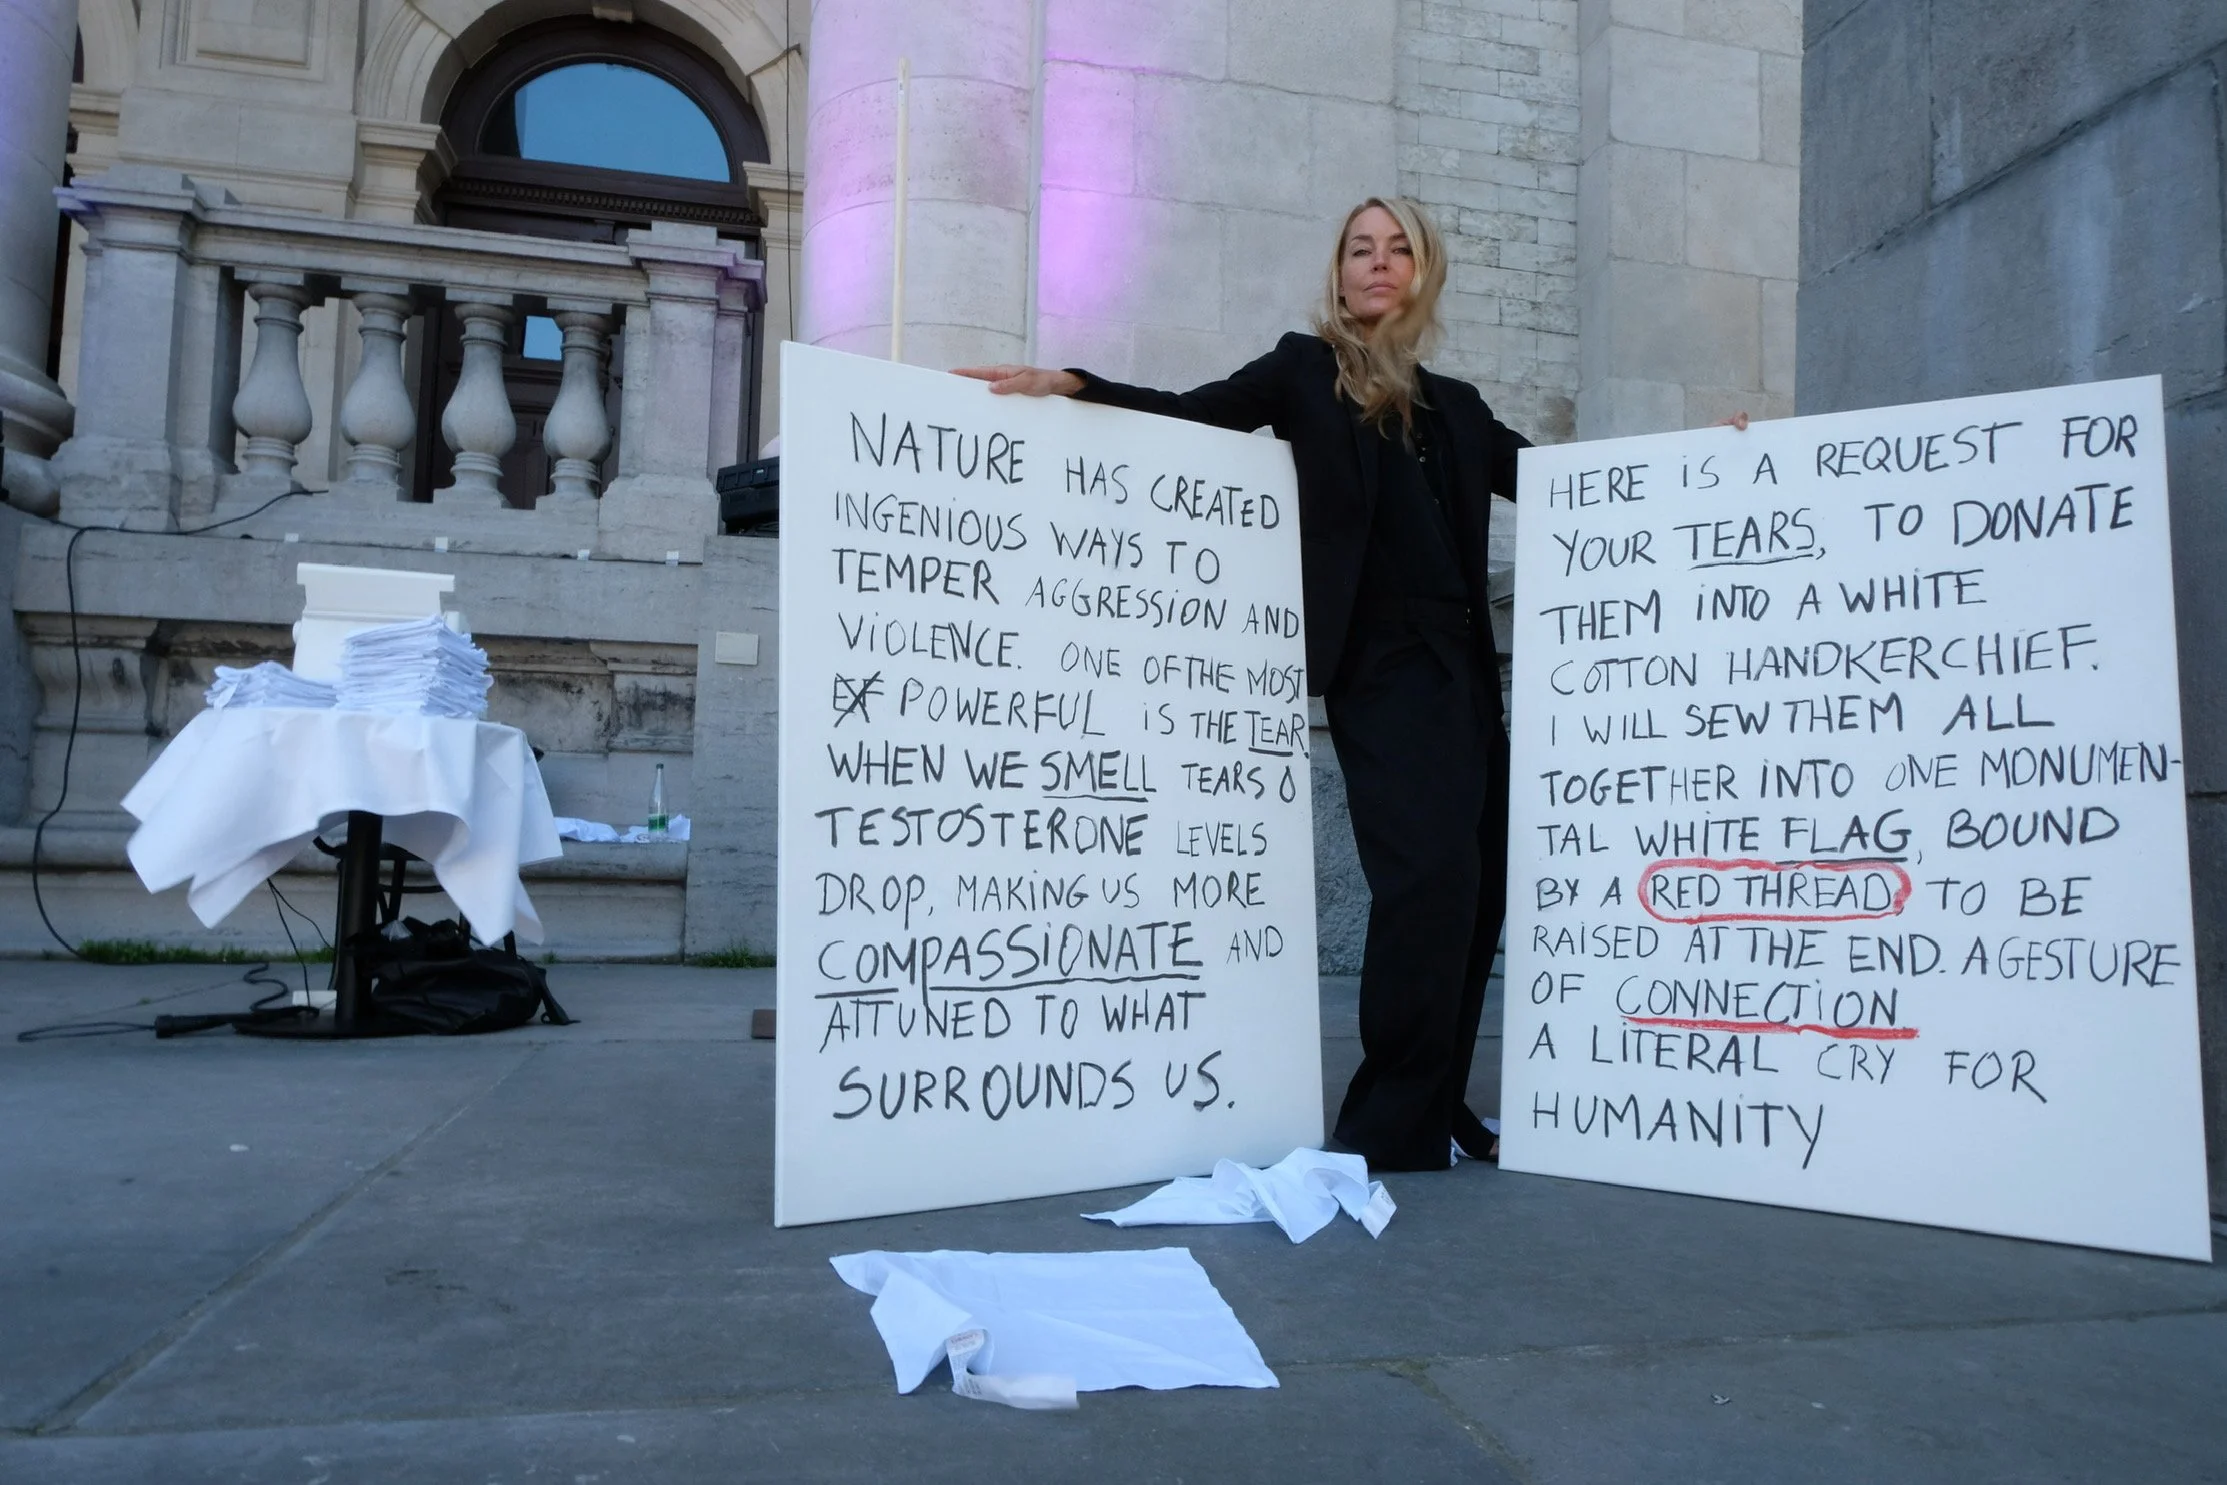 NATURE HAS CREATED
INGENIOUS WAYS TO
TEMPER AGGRESSION AND
VIOLENCE. ONE OF THE MOST
POWERFUL IS THE TEAR.
WHEN WE SMELL TEARS
TESTOSTERONE LEVELS
DROP, MAKING US MORE
COMPASSIONATE AND
ATTUNED TO WHAT
SURROUNDS US.
HERE IS A REQUEST FOR
YOUR TEARS, TO DONATE
THEM INTO A WHITE
COTTON HANDKERCHIEF.
I WILL SEW THEM ALL
TOGETHER INTO ONE MONUMEN-
TAL WHITE FLAG, BOUND
BY A RED THREAD TO BE
RAISED AT THE END. A GESTURE
OF CONNECTION
A LITERAL CRY FOR
HUMANITY